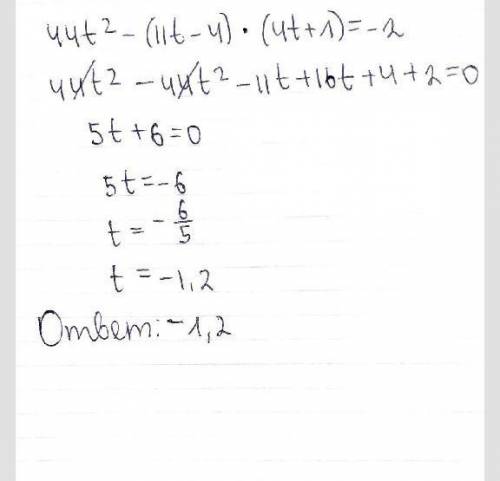 44t² - (11t - 4) · (4t + 1) = -2
44t² - 44t² - 11t + 16t + 4 + 2 = 0
5t + 6 = 0
5t = -6
t = - 6/5
t = -1,2
Ответ: -1,2